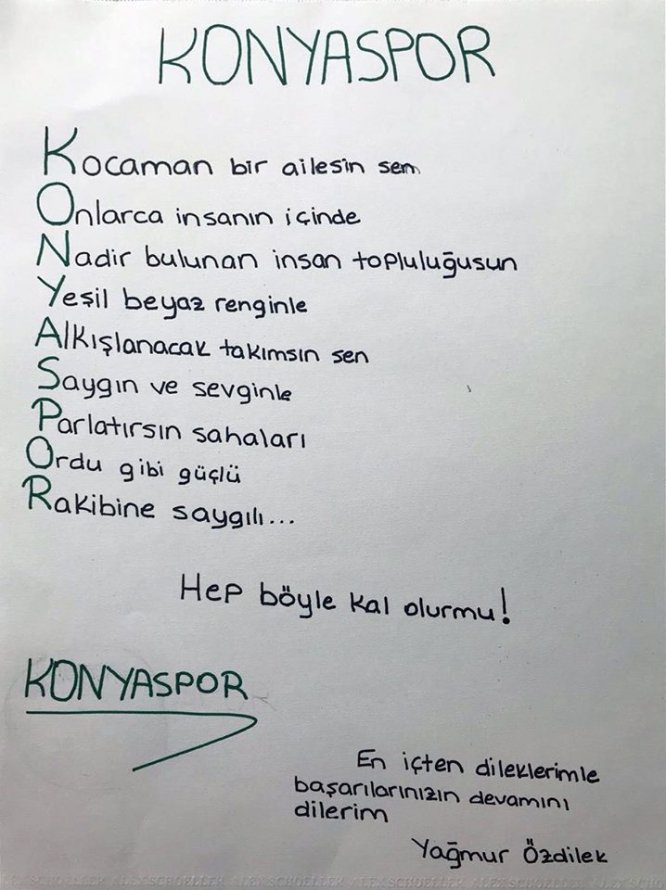 KONYASPOR
Kocaman bir ailesin sen
Onlarca insanın içinde
Nadir bulunan insan topluluğusun
Yeşil beyaz renginle
Alkışlanacak takımsın sen
Saygın ve sevginle
Parlatırsın sahaları
Ordu gibi güçlü
Rakibine saygılı...
Hep böyle kal olurmu!
KONYASPOR
En içten dileklerimle
başarılarınızın devamını
dilerim
Yağmur Özdilek